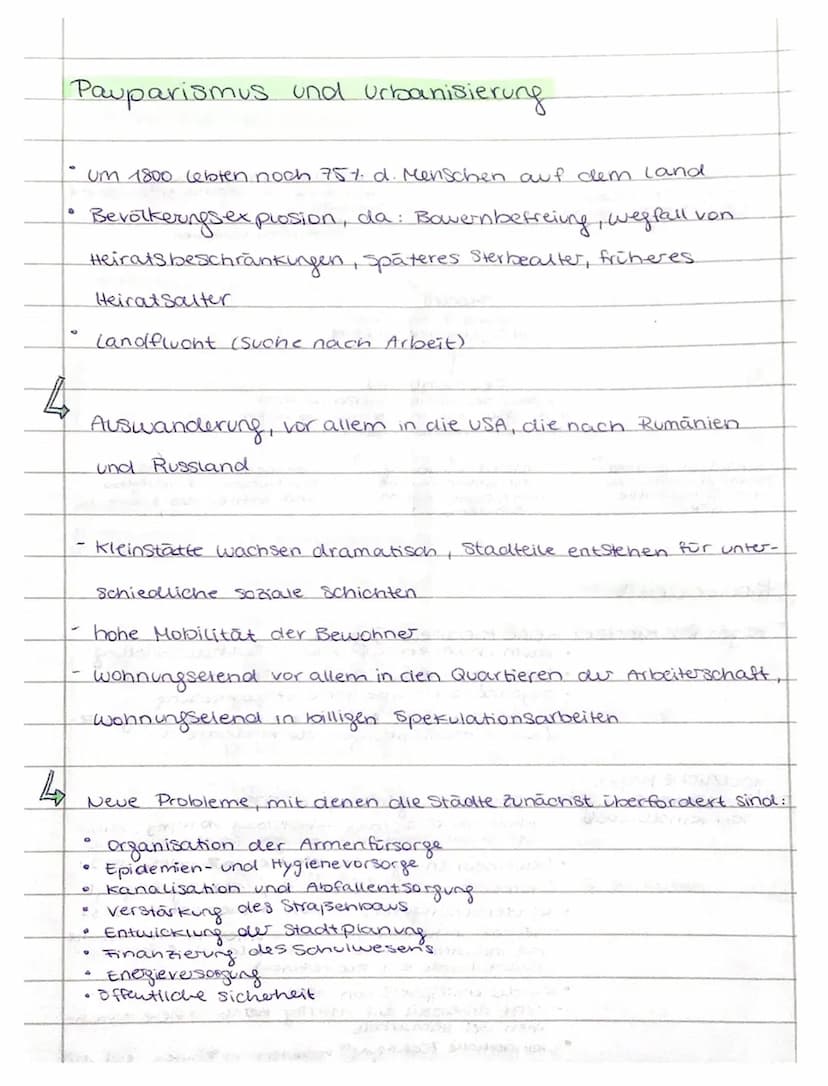 Pauparismus und Urbanisierung
• um 1800 lebten noch 75% d. Menschen auf dem Land
• Bevölkerungsexplosion, da: Bauernbefreiung, Wegfall von
Heiratsbeschränkungen, späteres Sterbealter, früheres
Heiratsalter
• Landflucht (Suche nach Arbeit)
↳ Auswanderung, vor allem in die USA, die nach Rumänien
und Russland
- Kleinstätte wachsen dramatisch, Stadteile entstehen für unter-
schiedliche soziale Schichten
- hohe Mobilität der Bewohner
- Wohnungselend vor allem in den Quartieren der Arbeiterschaft,
Wohnungselend in billigen Spekulationsarbeiten
↳ Neue Probleme, mit denen die Städte zunächst überfordert sind:
• Organisation der Armenfürsorge
• Epidemien- und Hygienevorsorge
• Kanalisation und Abfallentsorgung
• Verstärkung des Straßenbaus
• Entwicklung der Stadtplanung
• Finanzierung des Schulwesens
• Energieversorgung
• öffentliche Sicherheit